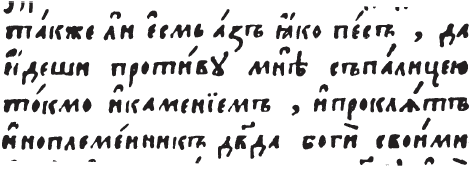 та́кже ли̑ е̑смь а́зъ ꙗ̑ко пе́съ , да
и̑деши проти́вꙋ мнѣ̑ съпа́лицею
то́кмо и̑каменїемъ , и̑проклѧ́тъ
и̑ноплеме́нникъ дв҃да боги̑ свои́ми